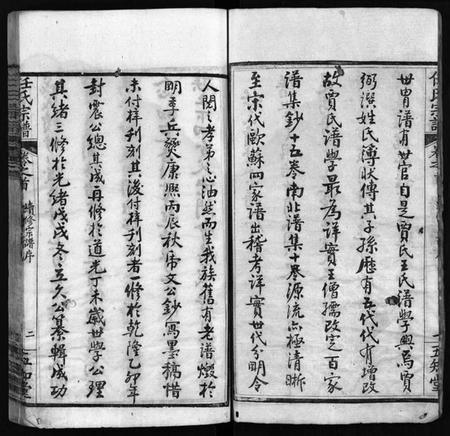 世冑譜有世官自是賈氏王氏譜學興焉賈
弼譔姓氏簿狀傳其子孫歷有五代代有增改
故賈氏譜學最為詳實王僧孺改定百家
譜集鈔十五卷南北譜集十卷源流亦極清晰
至宋代歐蘇四家譜出稽考詳實世代分明令
五知堂
任氏宗譜
卷之首
續修宗譜序
二
人閱之孝弟之心油然而生我族舊有老譜燬於
明季兵燹康熙丙辰秋佈文公鈔寫墨稿惜
未付梓刊刻其後付梓刊刻者一修於乾隆乙卯年
封震公總其成再修於道光丁未歲世學公理
其緒三修於光緒戊戌冬立久公纂輯成功